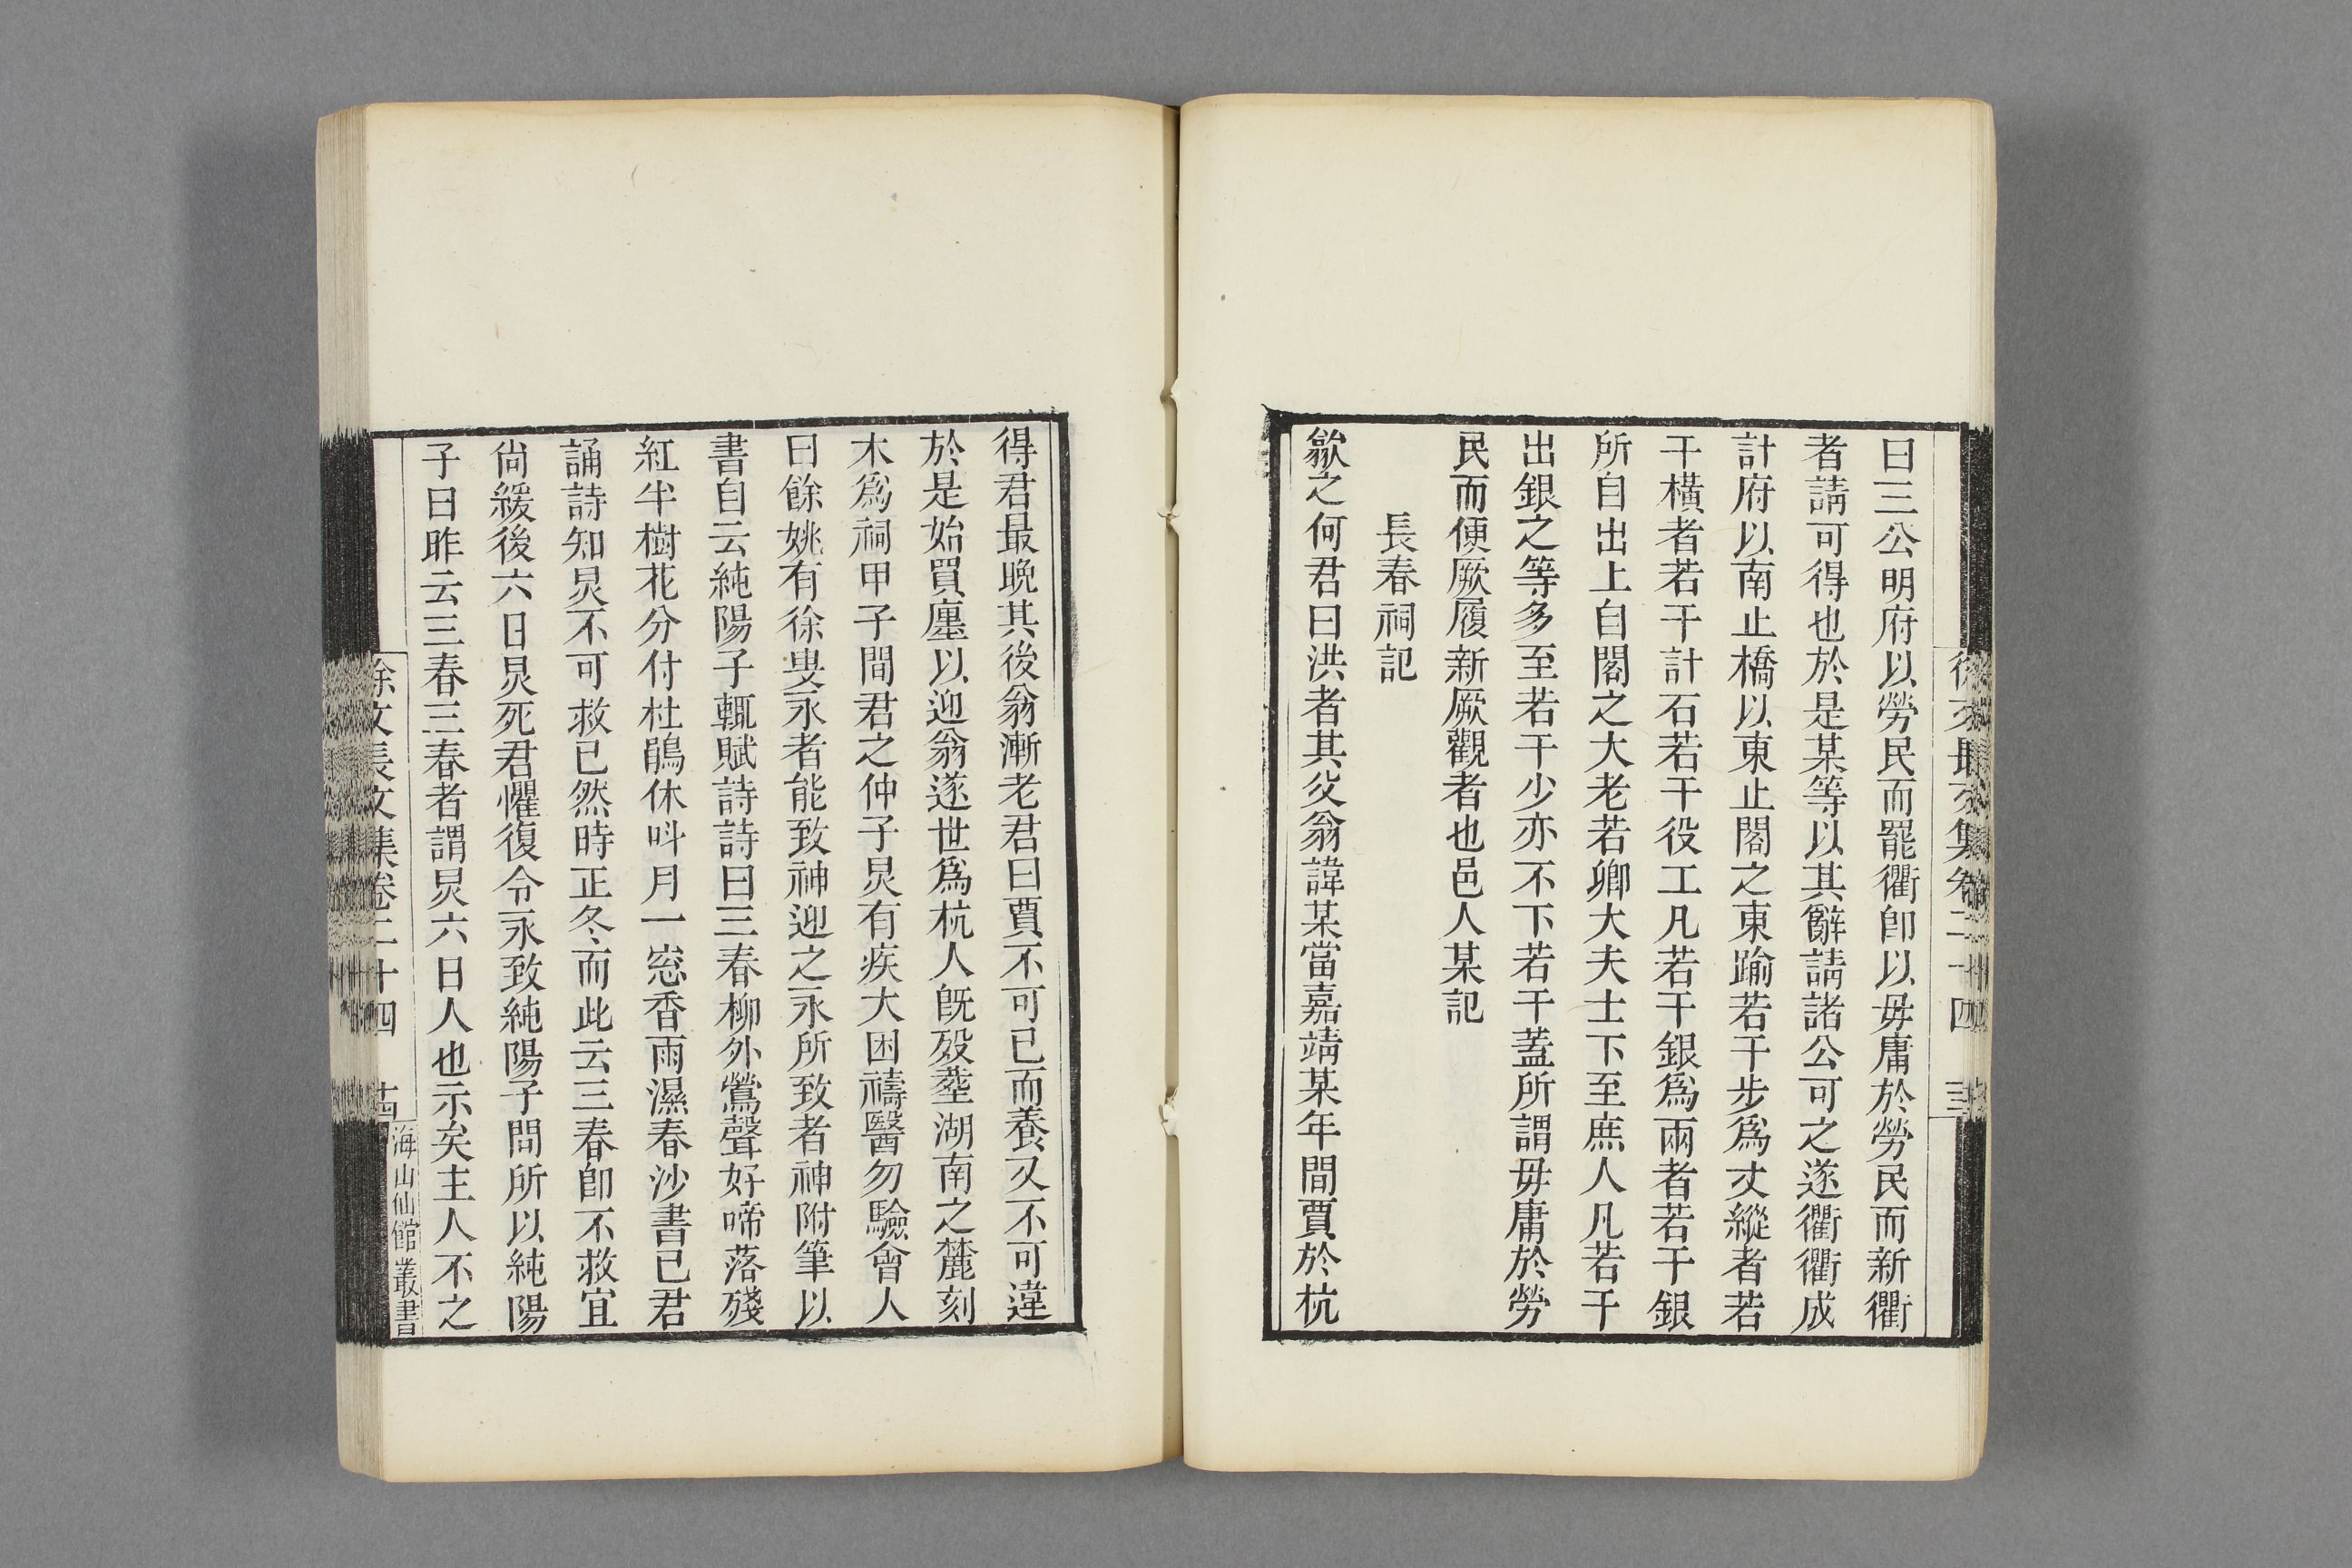 曰三公明府以勞民而罷衢卽以毋庸於勞民而新衢
者請可得也於是某等以其辭請諸公可之遂衢衢成
計府以南止橋以東止閣之東踰若干步爲丈縱者若
干橫者若干計石若干役工凡若干銀爲兩者若干銀
所自出上自閣之大老若卿大夫士下至庶人凡若干
出銀之等多至若干少亦不下若干蓋所謂毋庸於勞
民而便厥履新厥觀者也邑人某記
長春祠記
歙之何君曰洪者其父翁諱某當嘉靖某年間賈於杭
得君最晚其後翁漸老君曰賈不可已而養又不可違
於是始買廛以迎翁遂世爲杭人旣歿塟湖南之麓刻
木爲祠甲子間君之仲子炅有疾大困禱醫勿驗會人
曰餘姚有徐叟永者能致神迎之永所致者神附筆以
書自云純陽子輒賦詩詩曰三春柳外鶯聲好啼落殘
紅半樹花分付杜鵑休呌月一窓香雨濕春沙書已君
誦詩知炅不可救已然時正冬而此云三春卽不救宜
尙緩後六日炅死君懼復令永致純陽子問所以純陽
子曰昨云三春三春者謂炅六日人也示矣主人不之
徐文長文集卷二十四
海山仙館叢書